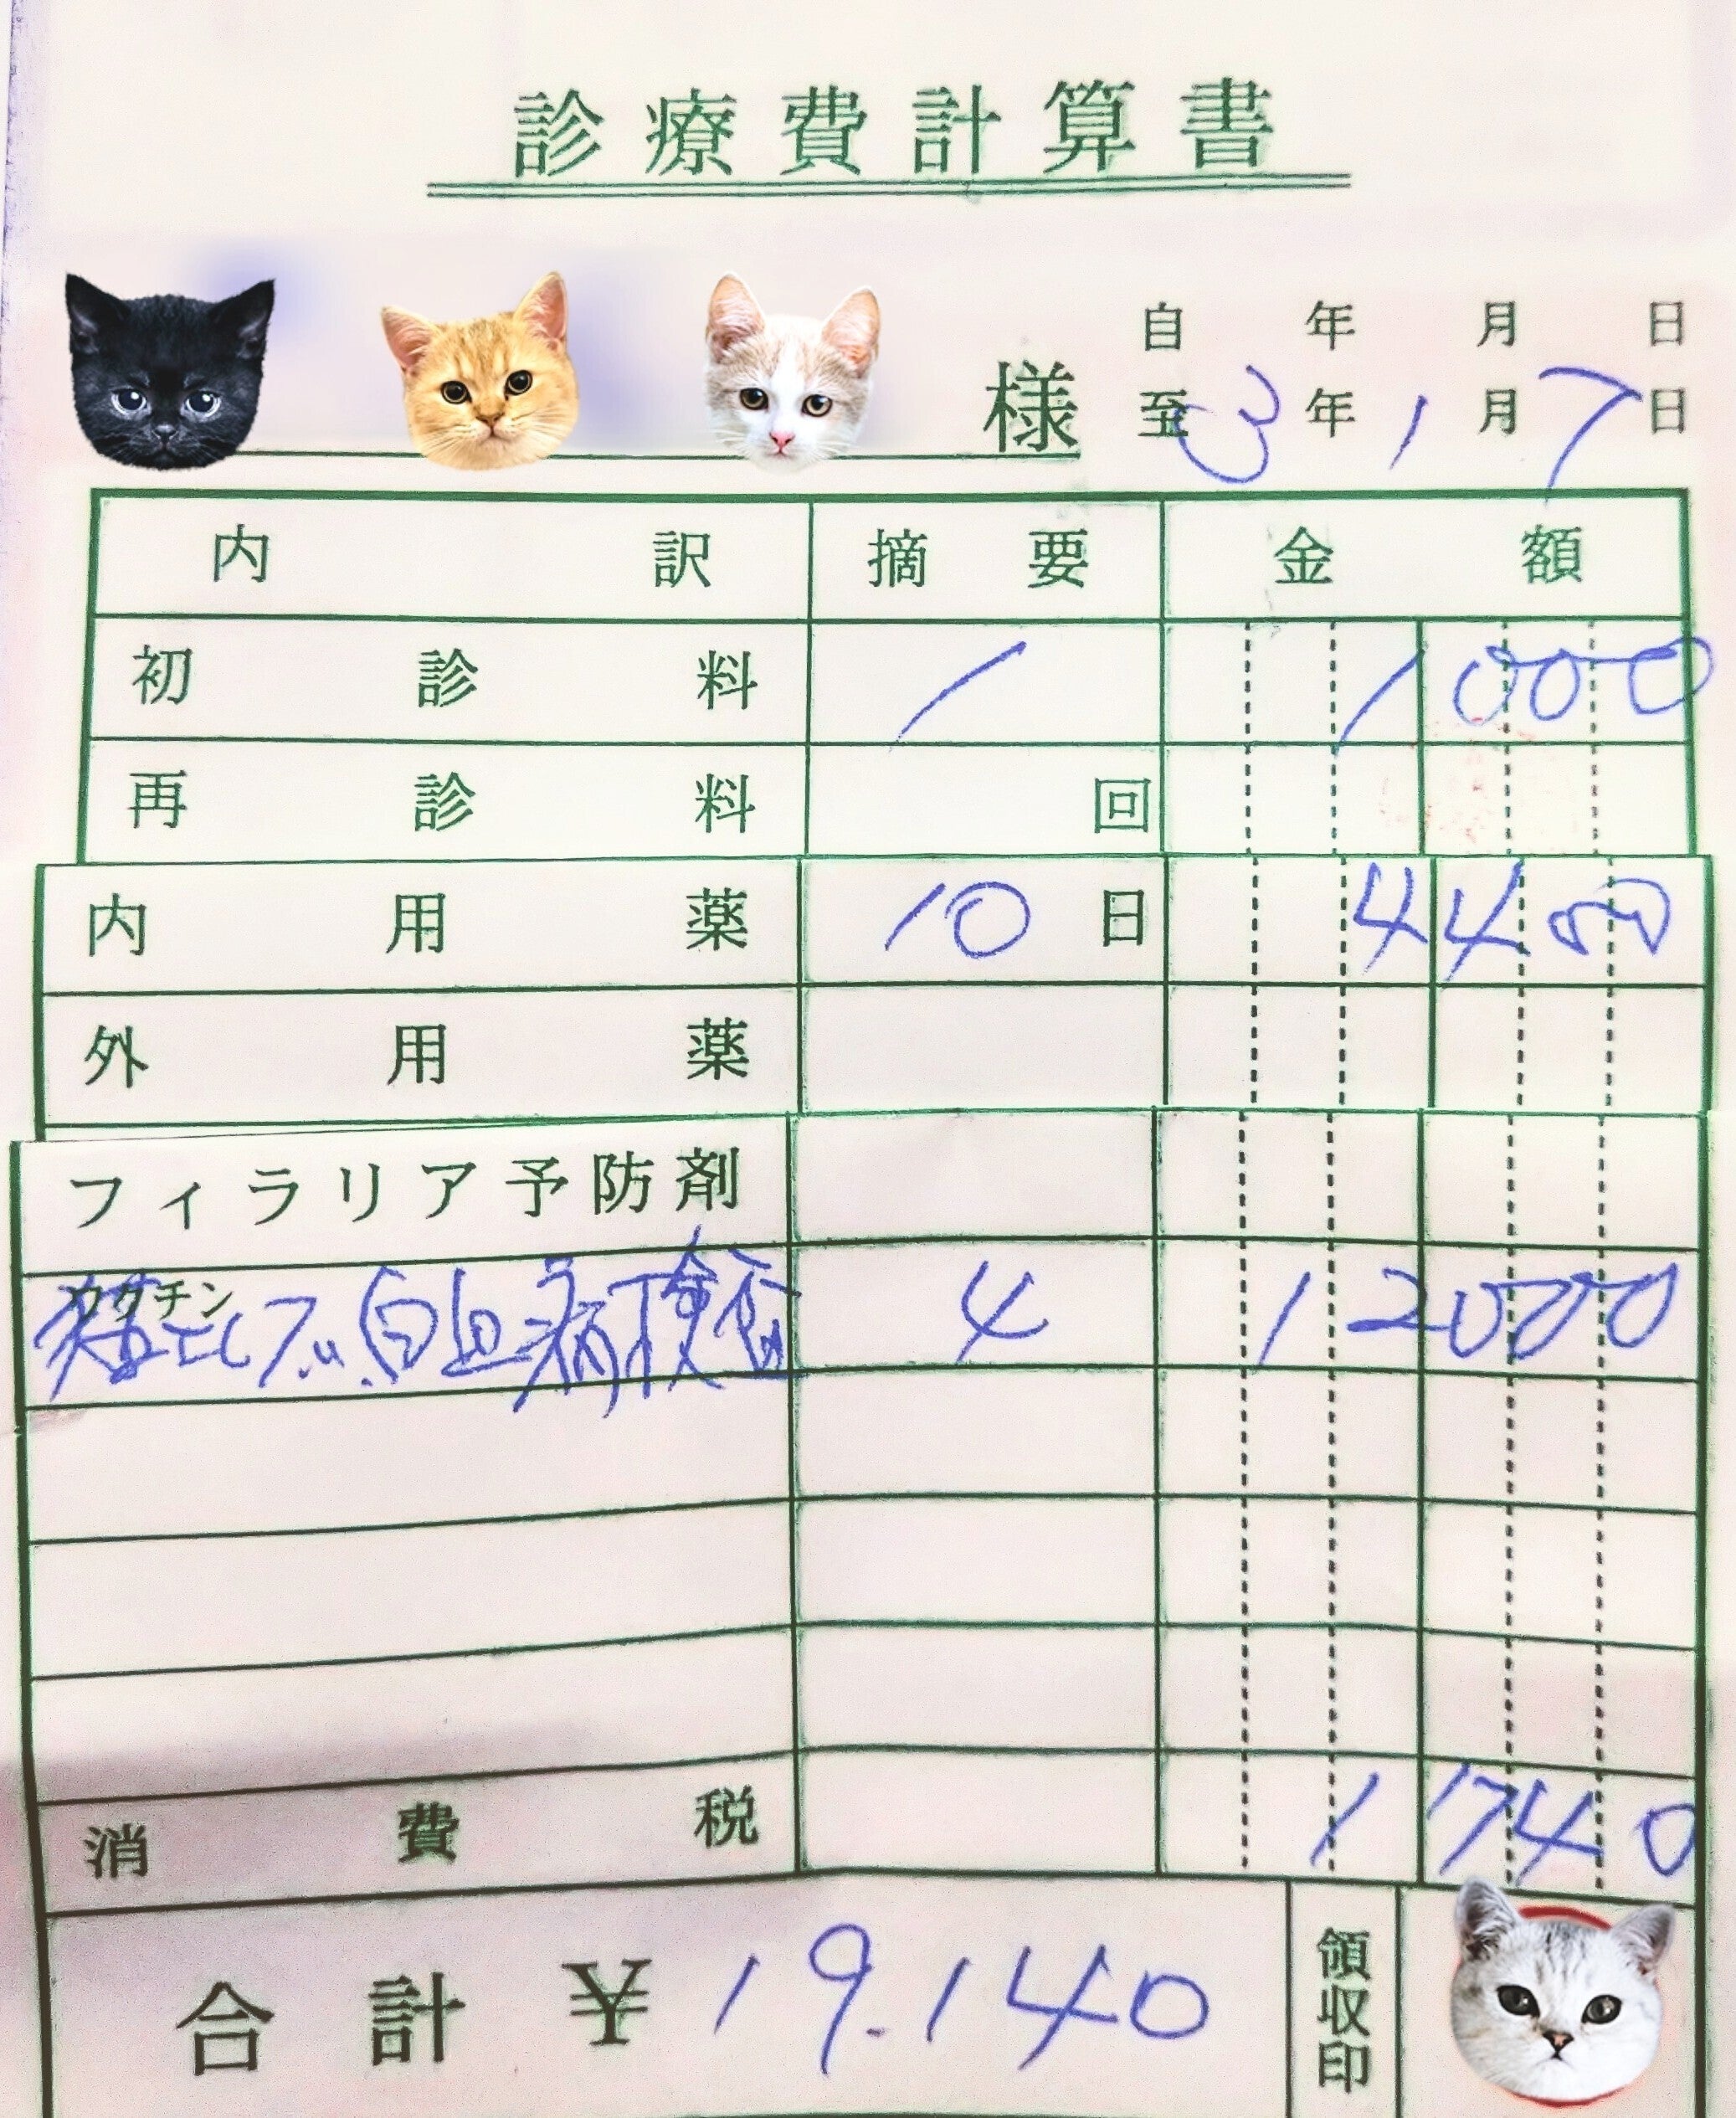 診療費計算書
様
自 年 月 日
至 3年 1月 7日
内訳 摘要 金額
初診料 1 1000
再診料 回
内用薬 10日 4400
外用薬
フィラリア予防剤
ワクチン
猫エイズ、白血病検査 4 12000
消費税 1740
合計 ¥19.140
領収印